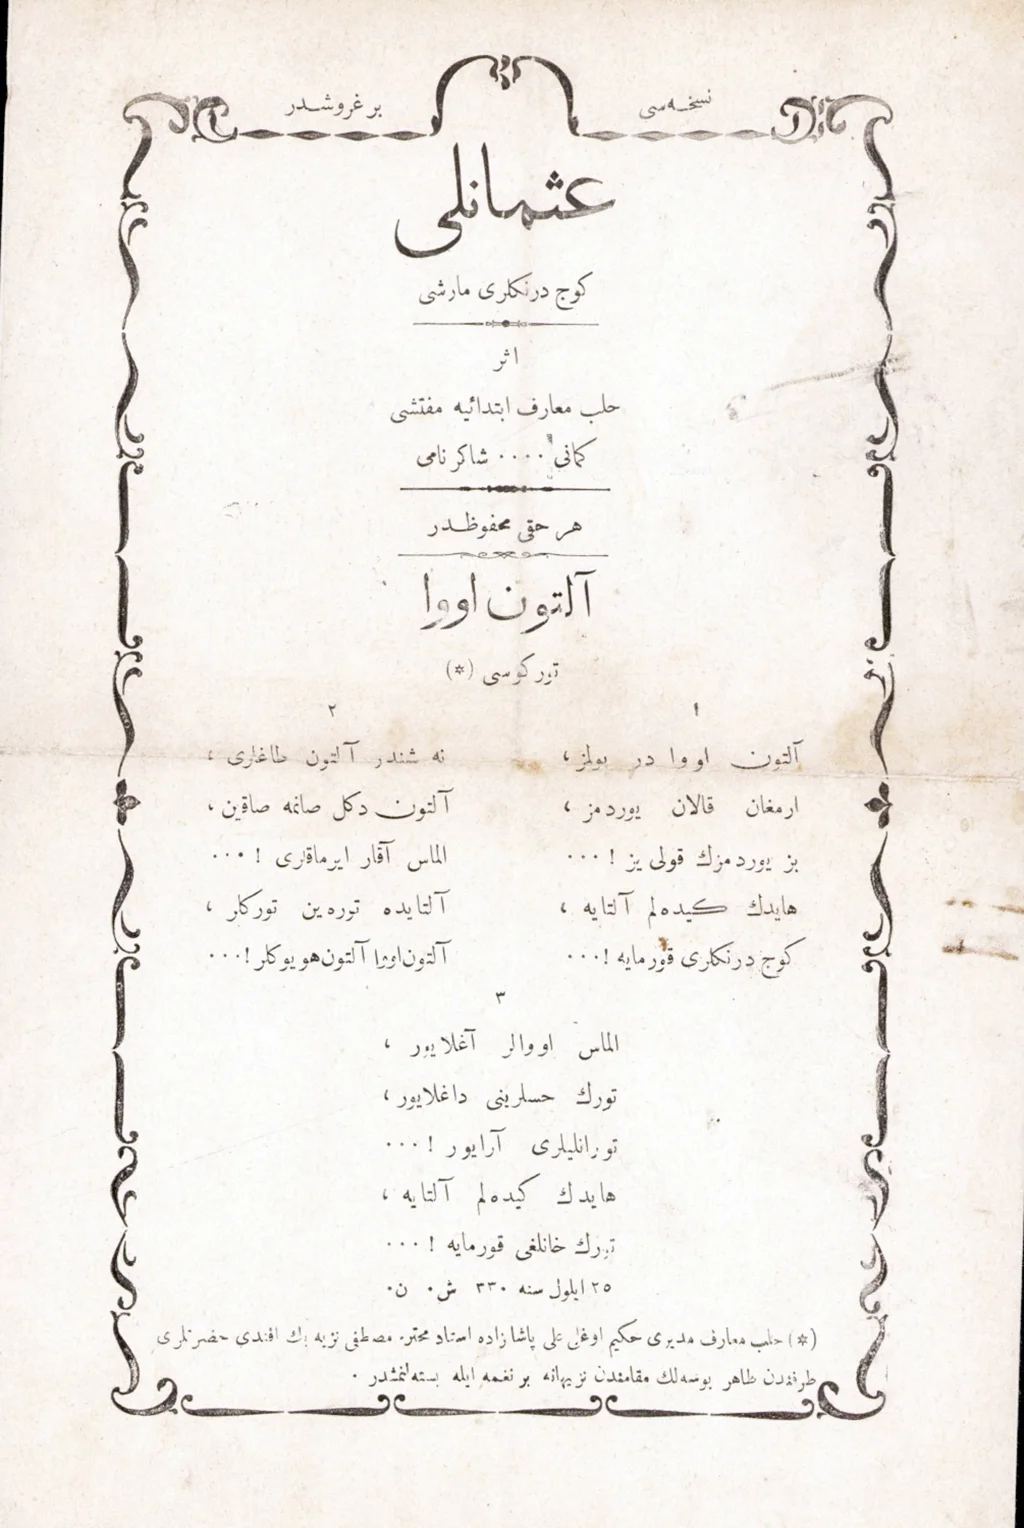 نسخه‌سی
بر غروشدر
عثمانلی
كوج درنكلری مارشی
اثر
حلب معارف ابتدائیه مفتشی
كمانی ۰۰۰۰ شاكر نامی
هر حقی محفوظدر
آلتون اووا
توركوسی (*)
۱
آلتون اووا در یولمز ،
ارمغان قالان یوردمز ،
بز یوردمزك قولی یز ! ۰۰۰
هایدك كیده‌لم آلتایه ،
كوج درنكلری قورمایه ! ۰۰۰
۲
نه شندر آلتون طاغلری ،
آلتون دكل صانمه صاقین ،
الماس آقار ایرماقلری ! ۰۰۰
آلتایده توره‌ین توركلر ،
آلتون اووا آلتون هویوكلر ! ۰۰۰
۳
الماس اووالر آغلایور ،
تورك حسلرینی داغلایور ،
تورانلیلری آرایور ! ۰۰۰
هایدك كیده‌لم آلتایه ،
تورك خانلغی قورمایه ! ۰۰۰
۲۵ ایلول سنه ۳۳۰ ش۰ ن۰
(*) حلب معارف مدیری حكیم اوغلی علی پاشا زاده استاد محترم مصطفی نزیه بك افندی حضرتلری
طرفندن طاهر بوسه‌لك مقامندن نزیهانه بر نغمه ایله بسته‌لنمشدر ۰